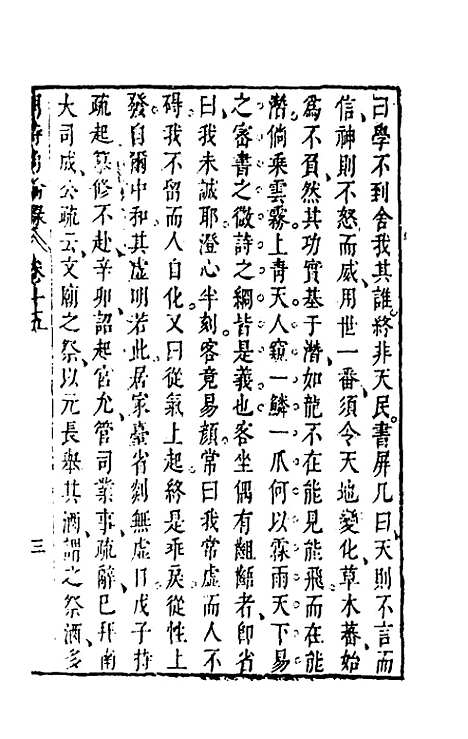 曰學不到舍我其誰終非天民書屏几曰天則不言而
信神則不怒而威用世一番須令天地變化草木蕃始
爲不負然其功實基于潛如龍不在能見能飛而在能
潛倘乘雲霧上靑天人窺一鱗一爪何以霖雨天下易
之密書之微詩之綱皆是義也客坐偶有齟齬者卽省
曰我未誠耶澄心半刻客竟易顏常曰我常虛而人不
碍我不留而人自化又曰從氣上起終是乖戾從性上
發自爾中和其虛明若此居家臺省剡無虛日戊子持
疏起纂修不赴辛卯詔起官允管司業事疏辭已拜南
大司成公疏云文廟之祭以元長舉其酒謂之祭酒多
卷十五
三